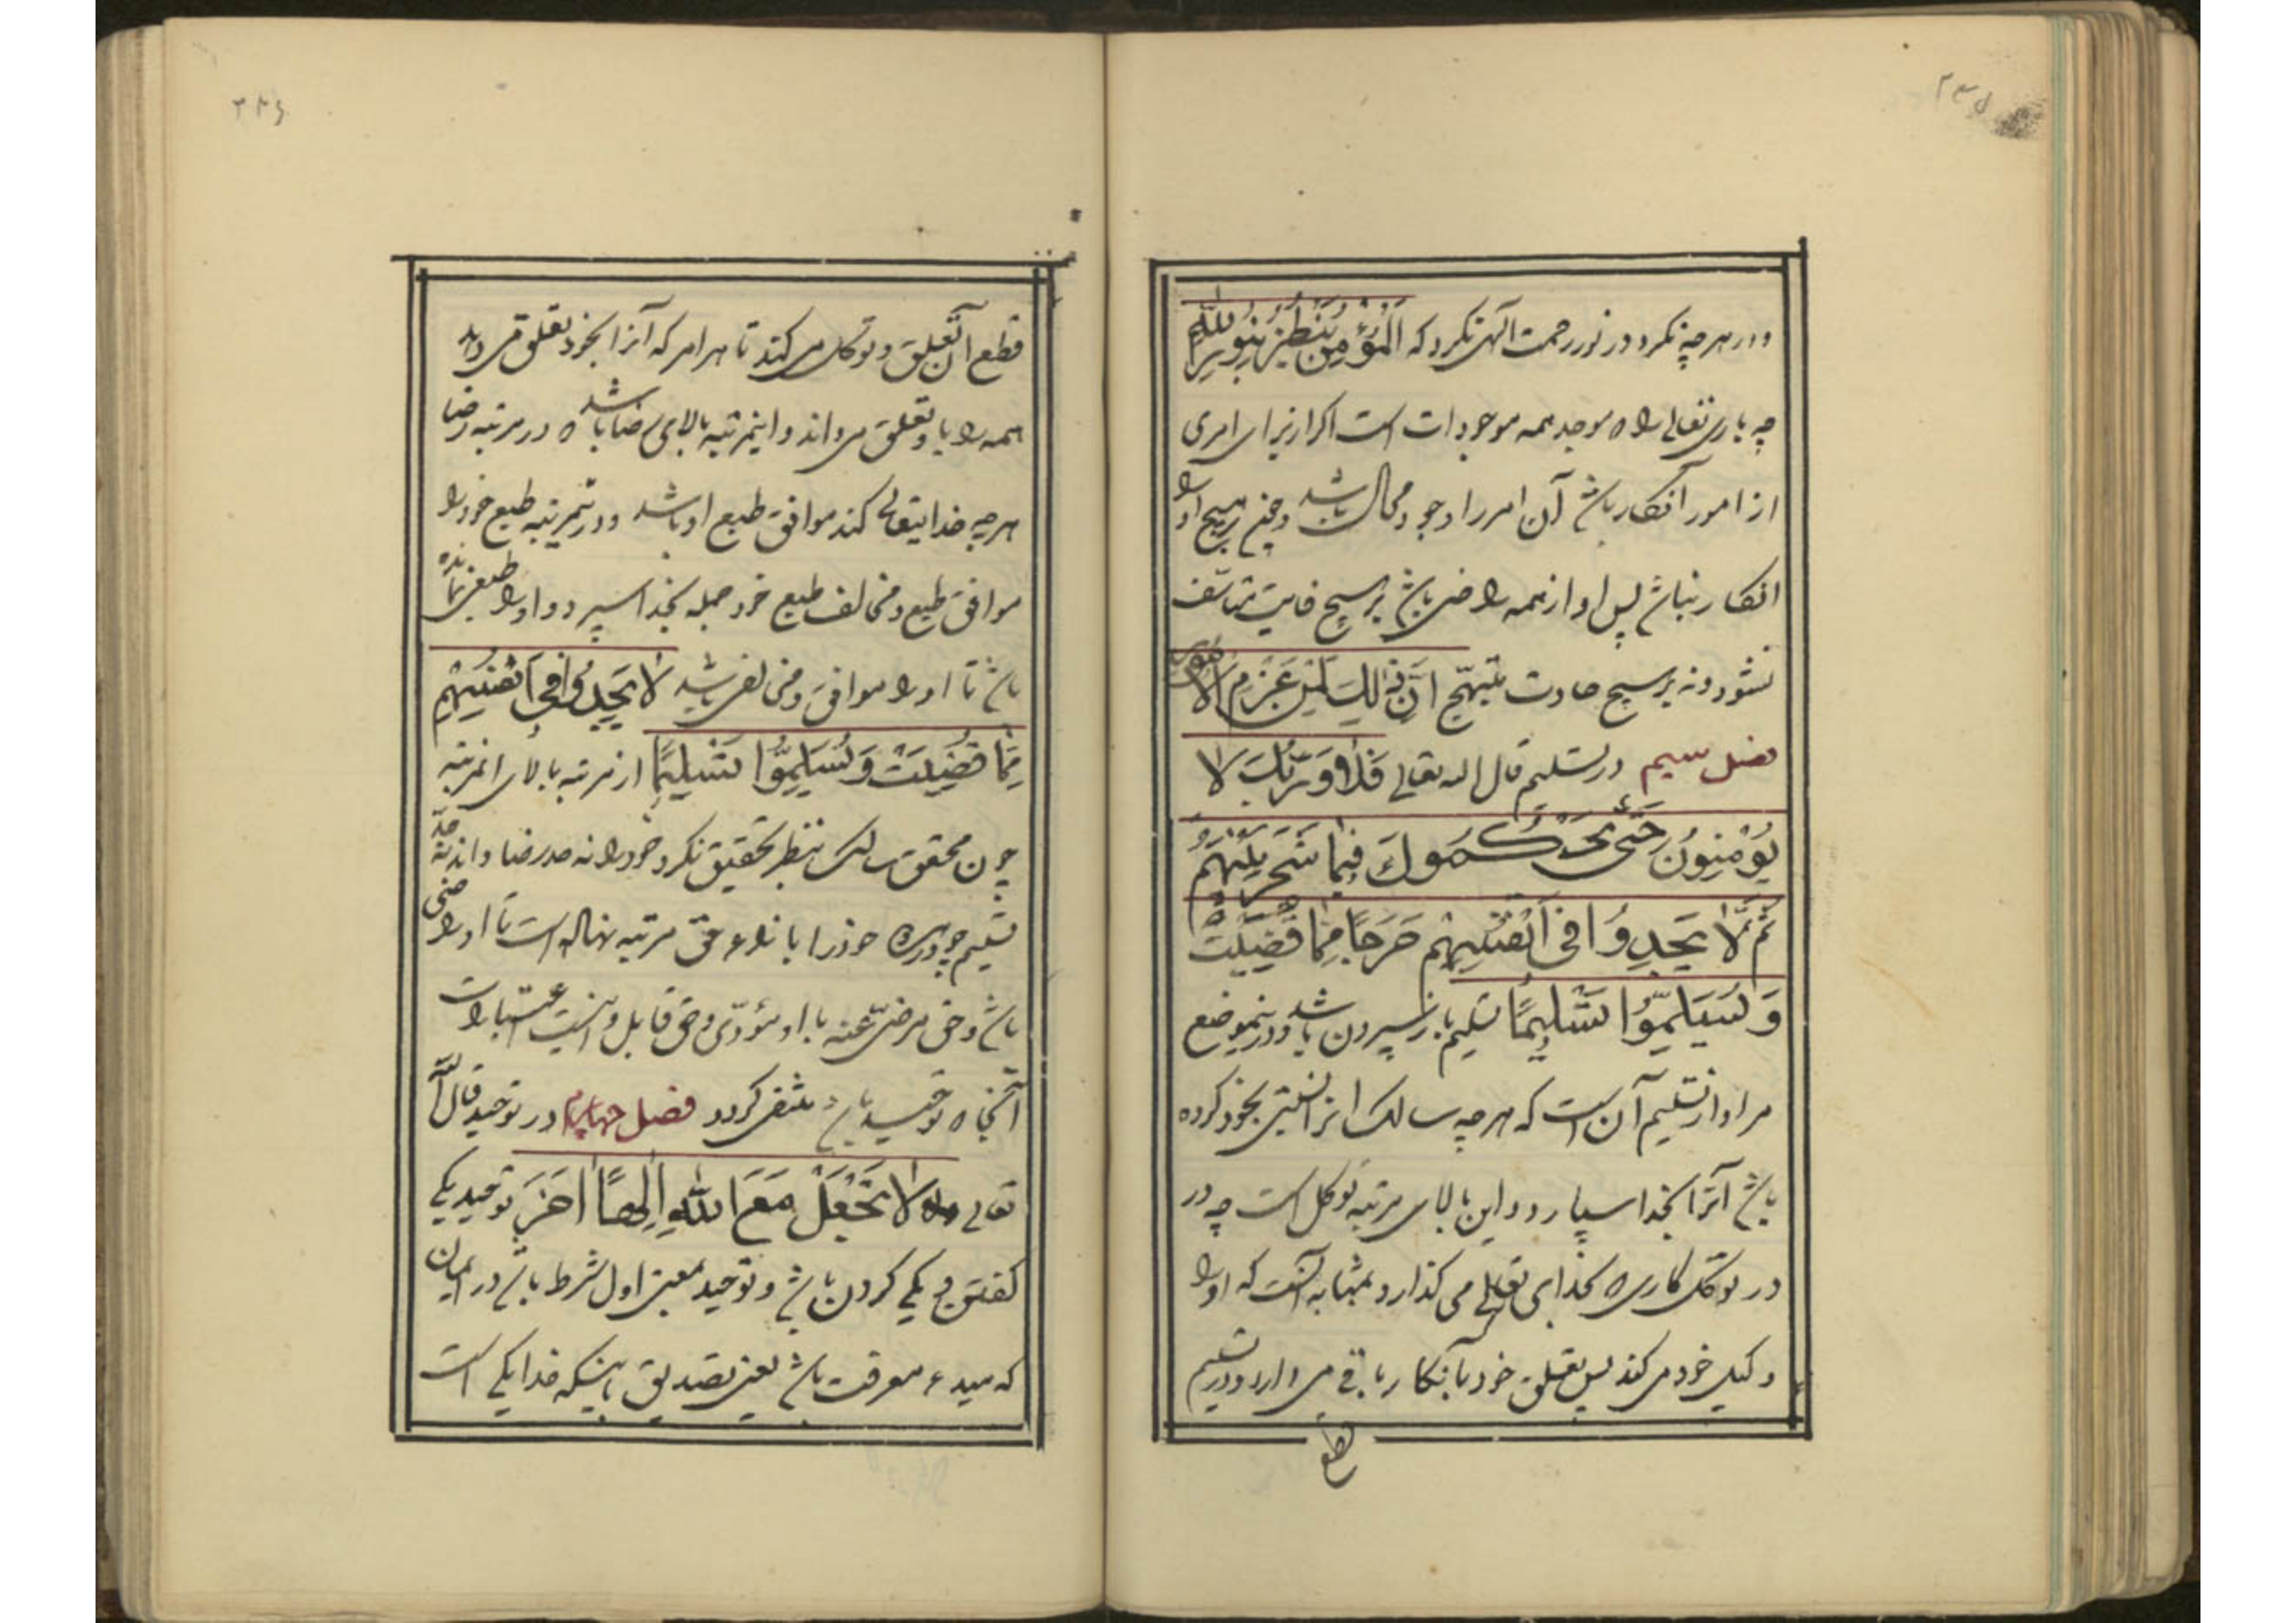 ۲۳۵
و در هرچه نگرد در نور رحمت الهی نگرد که اَلْمُؤْمِنُ یَنْظُرُ بِنُورِ اللّٰهِ
چه باری تعالی را که موجد همه موجودات است اگر از برای امری
از امور انکار باشد آن امر را وجود محال باشد و چون بر هیچ او را
انکار نباشد پس او از همه راضی باشد نه بر هیچ فایت متأسف
نشود و نه بر هیچ حادث مبتهج اِنَّ ذٰلِكَ لَمِنْ عَزْمِ الْاُمُورِ
فصل سیم در تسلیم قال الله تعالی فَلَا وَرَبِّكَ لَا
یُؤْمِنُونَ حَتّٰی یُحَكِّمُوكَ فِیمَا شَجَرَ بَیْنَهُمْ
ثُمَّ لَا یَجِدُوا فِی اَنْفُسِهِمْ حَرَجًا مِمَّا قَضَیْتَ
وَ یُسَلِّمُوا تَسْلِیمًا تسلیم باز سپردن باشد و در ینموضع
مراد از تسلیم آن است که هرچه سالک آنرا نسبتی بخود کرده
باشد آنرا بخدا سپارد و این بالای مرتبه توکل است چه در
در توکل کاری که بخدای تعالی می گذارد بمثابه آنست که او را
وکیل خود می کند پس تعلق خود بآنکار باقی می داند و در تسلیم
قطع
۲۳۶
قطع آن تعلق و توکل می کند تا هر امر که آنرا بخود تعلق می داند
همه را باو تعلق می داند و اینمرتبه بالای رضا باشد که در مرتبه رضا
هرچه خدایتعالی کند موافق طبع او باشد و در ینمرتبه طبع خود را
موافق طبع و مخالف طبع خود جمله بخدا سپرد و او را طبعی نمانده
باشد تا او را موافق و مخالفی باشد لَا یَجِدُوا فِی اَنْفُسِهِمْ
مِمَّا قَضَیْتَ وَ یُسَلِّمُوا تَسْلِیمًا از مرتبه بالای اینمرتبه
چون محقق سالک بنظر تحقیق نگرد خود را نه حد رضا داند نه حد
تسلیم چه در هر دو خود را بازاء حق مرتبه نهاده است تا او راضی
باشد و حق مرضی عنه یا او مؤدی و حق قابل و این اعتبارات
آنجا که توحید باشد منتفی گردد فصل چهارم در توحید قال الله
تعالی لَا تَجْعَلْ مَعَ اللّٰهِ اِلٰهًا اٰخَرَ توحید یکی
گفتن و یکی کردن باشد و توحید بمعنی اول شرط باشد در ایمان
که مبدء معرفت باشد یعنی تصدیق باینکه خدا یکی است